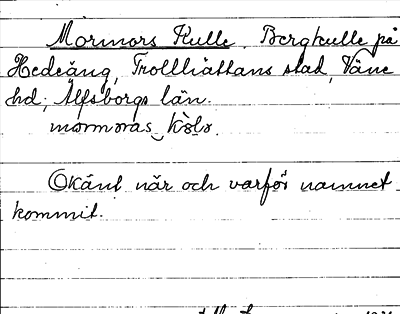 Mormors Kulle. Bergkulle på
Hedeäng, Trollhättans stad, Väne
hd; Älfsborgs län.
mòrmoras kòls.
Okänt när och varför namnet
kommit.